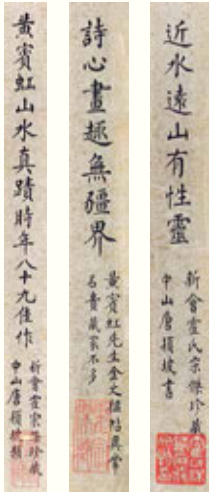 近水遠山有性靈
新會霍氏宗傑珍藏
中山唐積坡書
詩心畫趣無疆界
黃賓虹先生金文楹帖異常
名貴藏家不多
黃賓虹山水真蹟時年八十九佳作
新會霍宗傑珍藏
中山唐積坡題